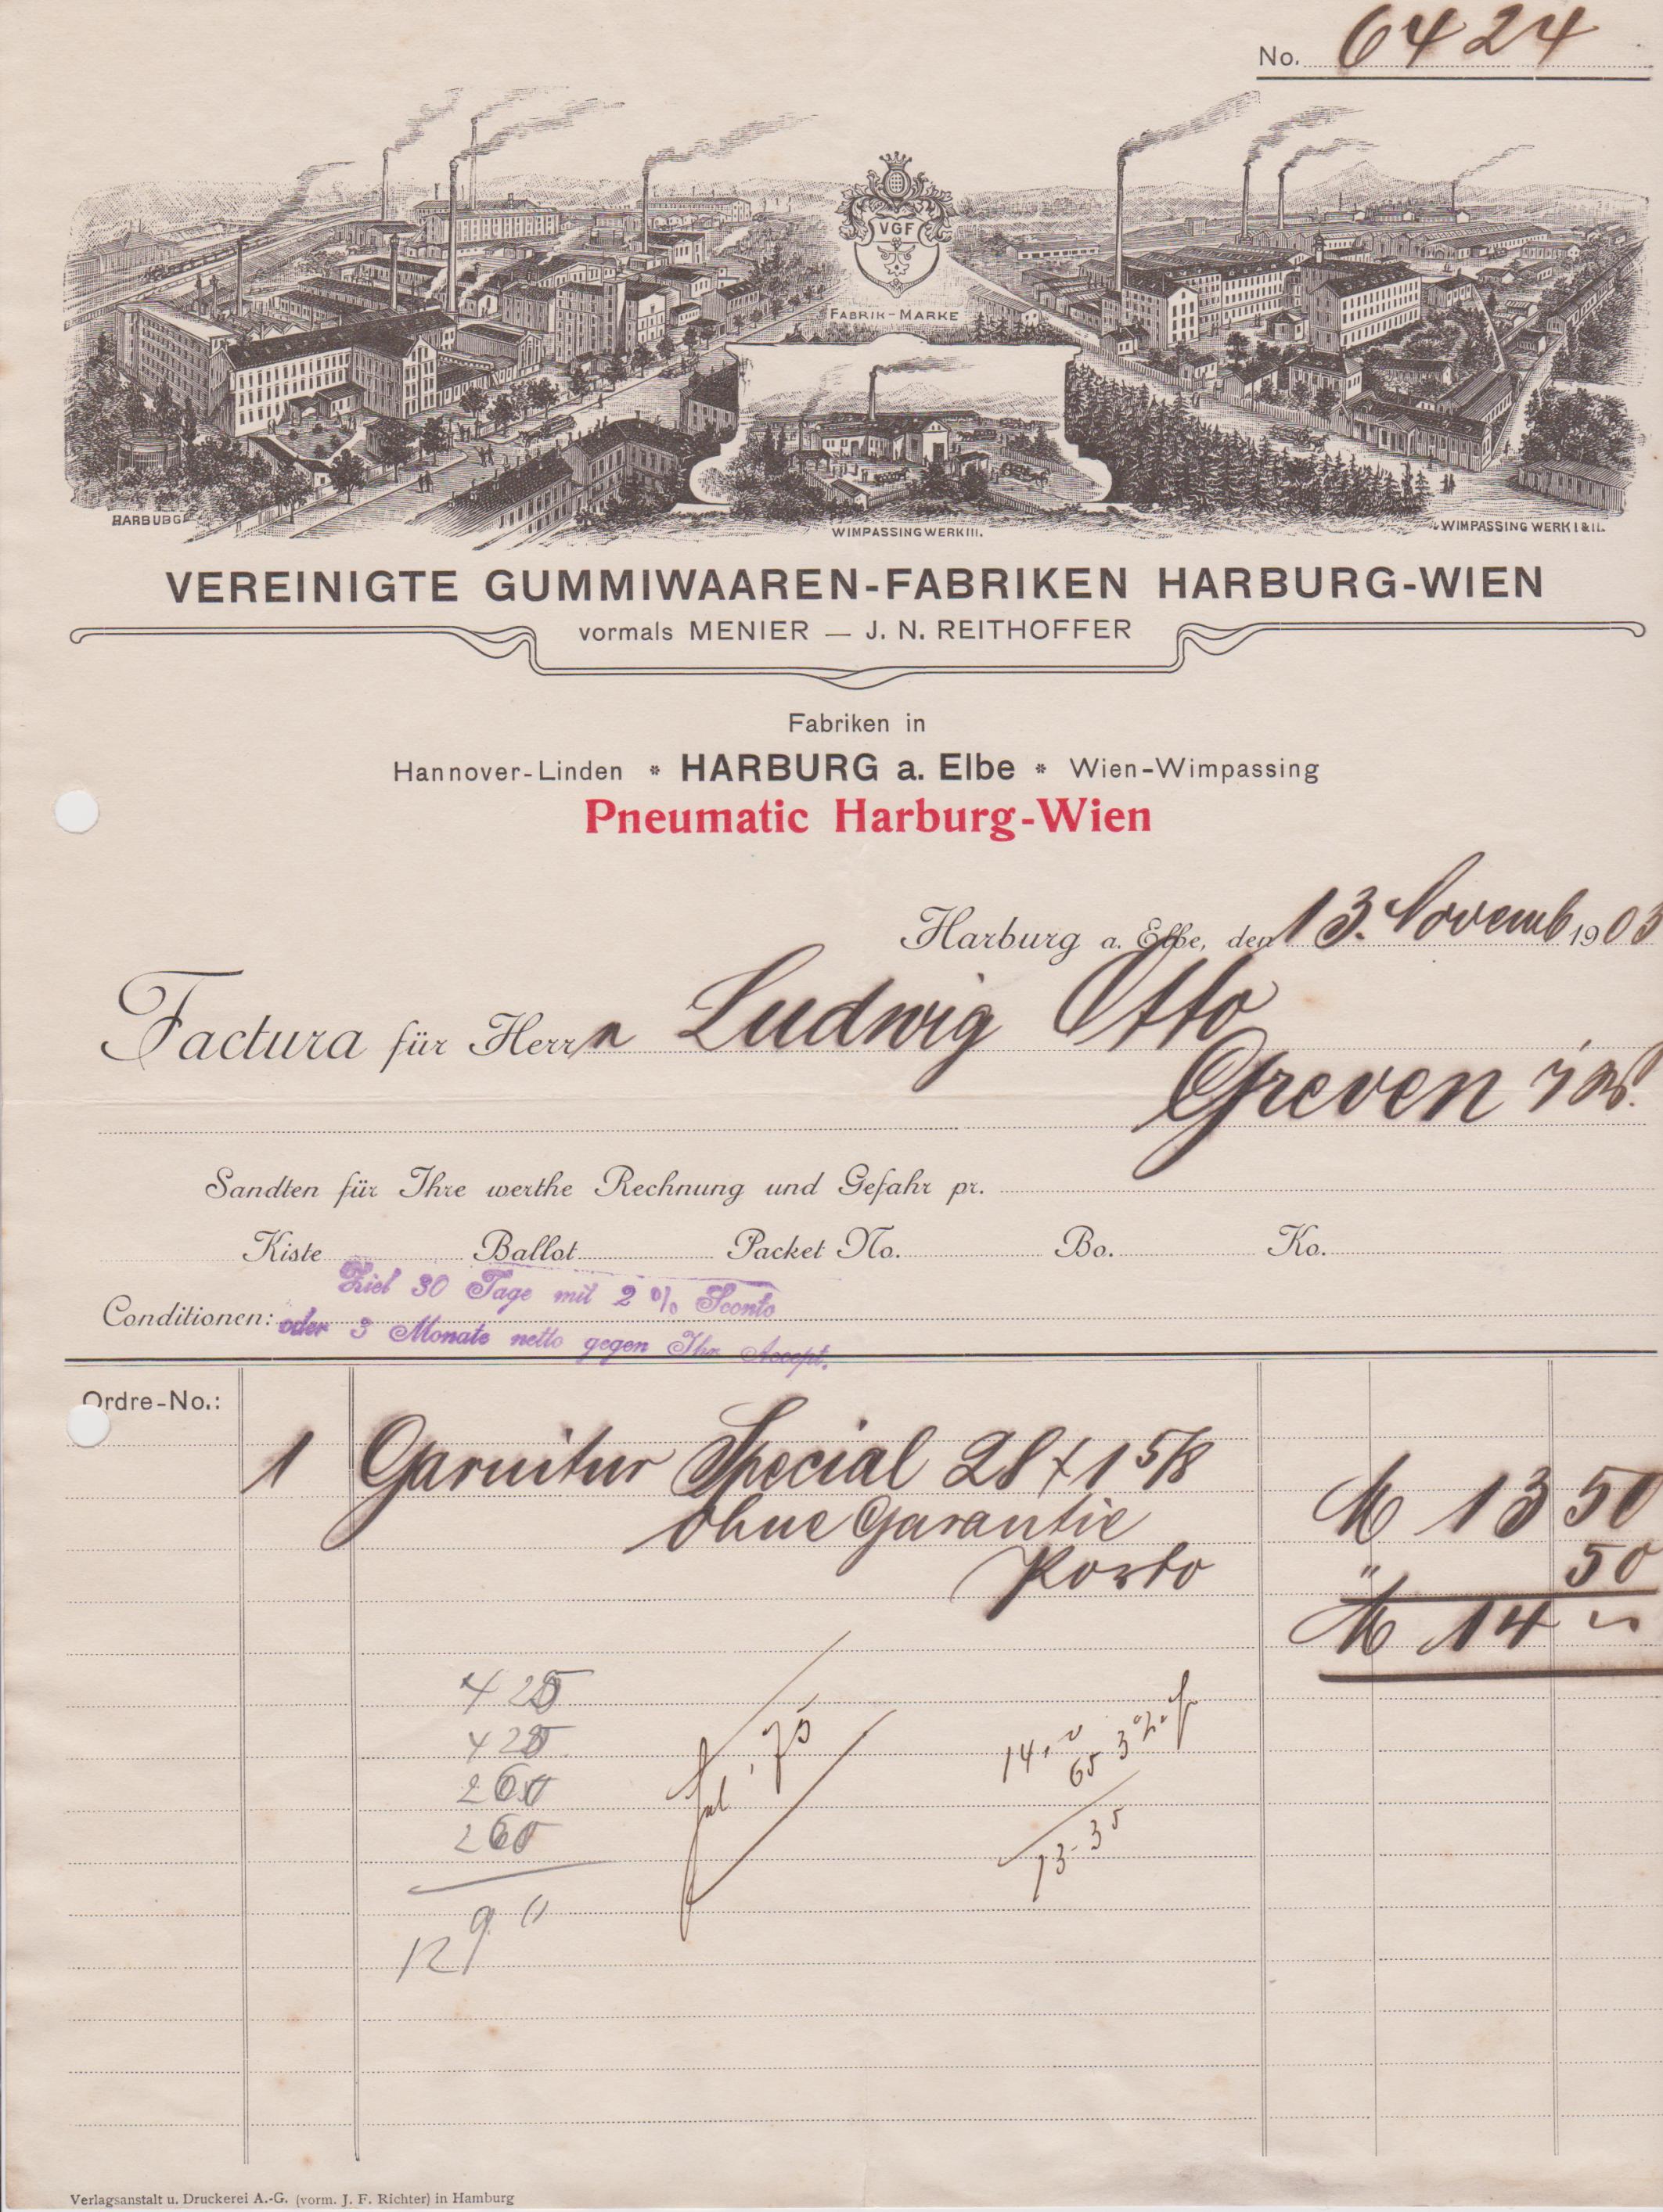 No. 6424
VGF
FABRIK-MARKE
HARBURG
WIMPASSING WERK III.
WIMPASSING WERK I & II.
VEREINIGTE GUMMIWAAREN-FABRIKEN HARBURG-WIEN
vormals MENIER — J. N. REITHOFFER
Fabriken in
Hannover-Linden * HARBURG a. Elbe * Wien-Wimpassing
Pneumatic Harburg-Wien
Harburg a. Elbe, den 13. Novemb 1903
Factura für Herrn Ludwig Otto
Greven i/W.
Sandten für Ihre werthe Rechnung und Gefahr pr.
Kiste Ballot Packet No. Bo. Ko.
Ziel 30 Tage mit 2 % Sconto
Conditionen: oder 3 Monate netto gegen Ihr Accept.
Ordre-No.:
1 Garnitur Special 28 x 1 5/8
ohne Garantie M 13 50
Porto " 50
M 14 —
425
425
260
260
129
,75
14,-
65 3%
13-35
Verlagsanstalt u. Druckerei A.-G. (vorm. J. F. Richter) in Hamburg